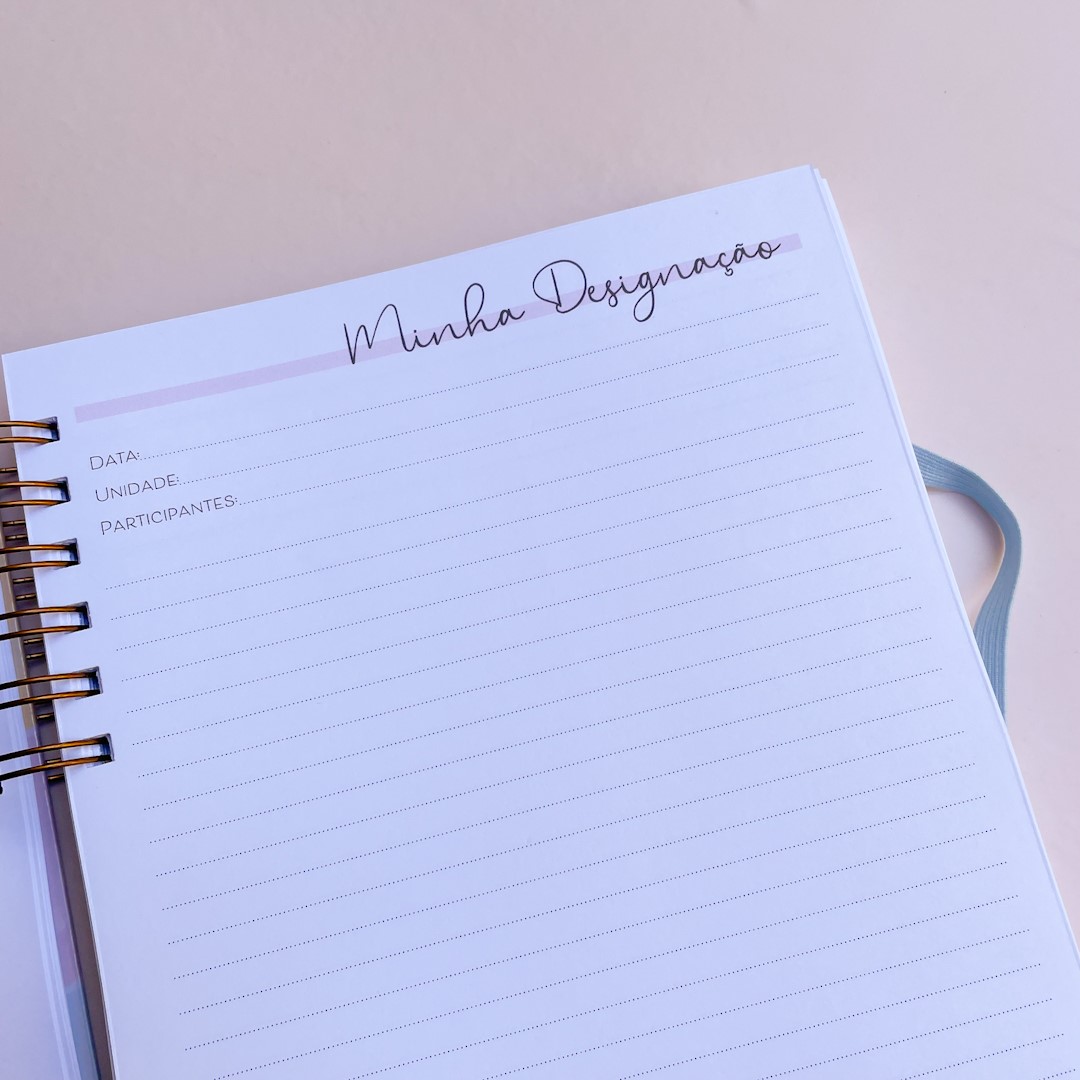 Minha Designação
DATA:
UNIDADE:
PARTICIPANTES: